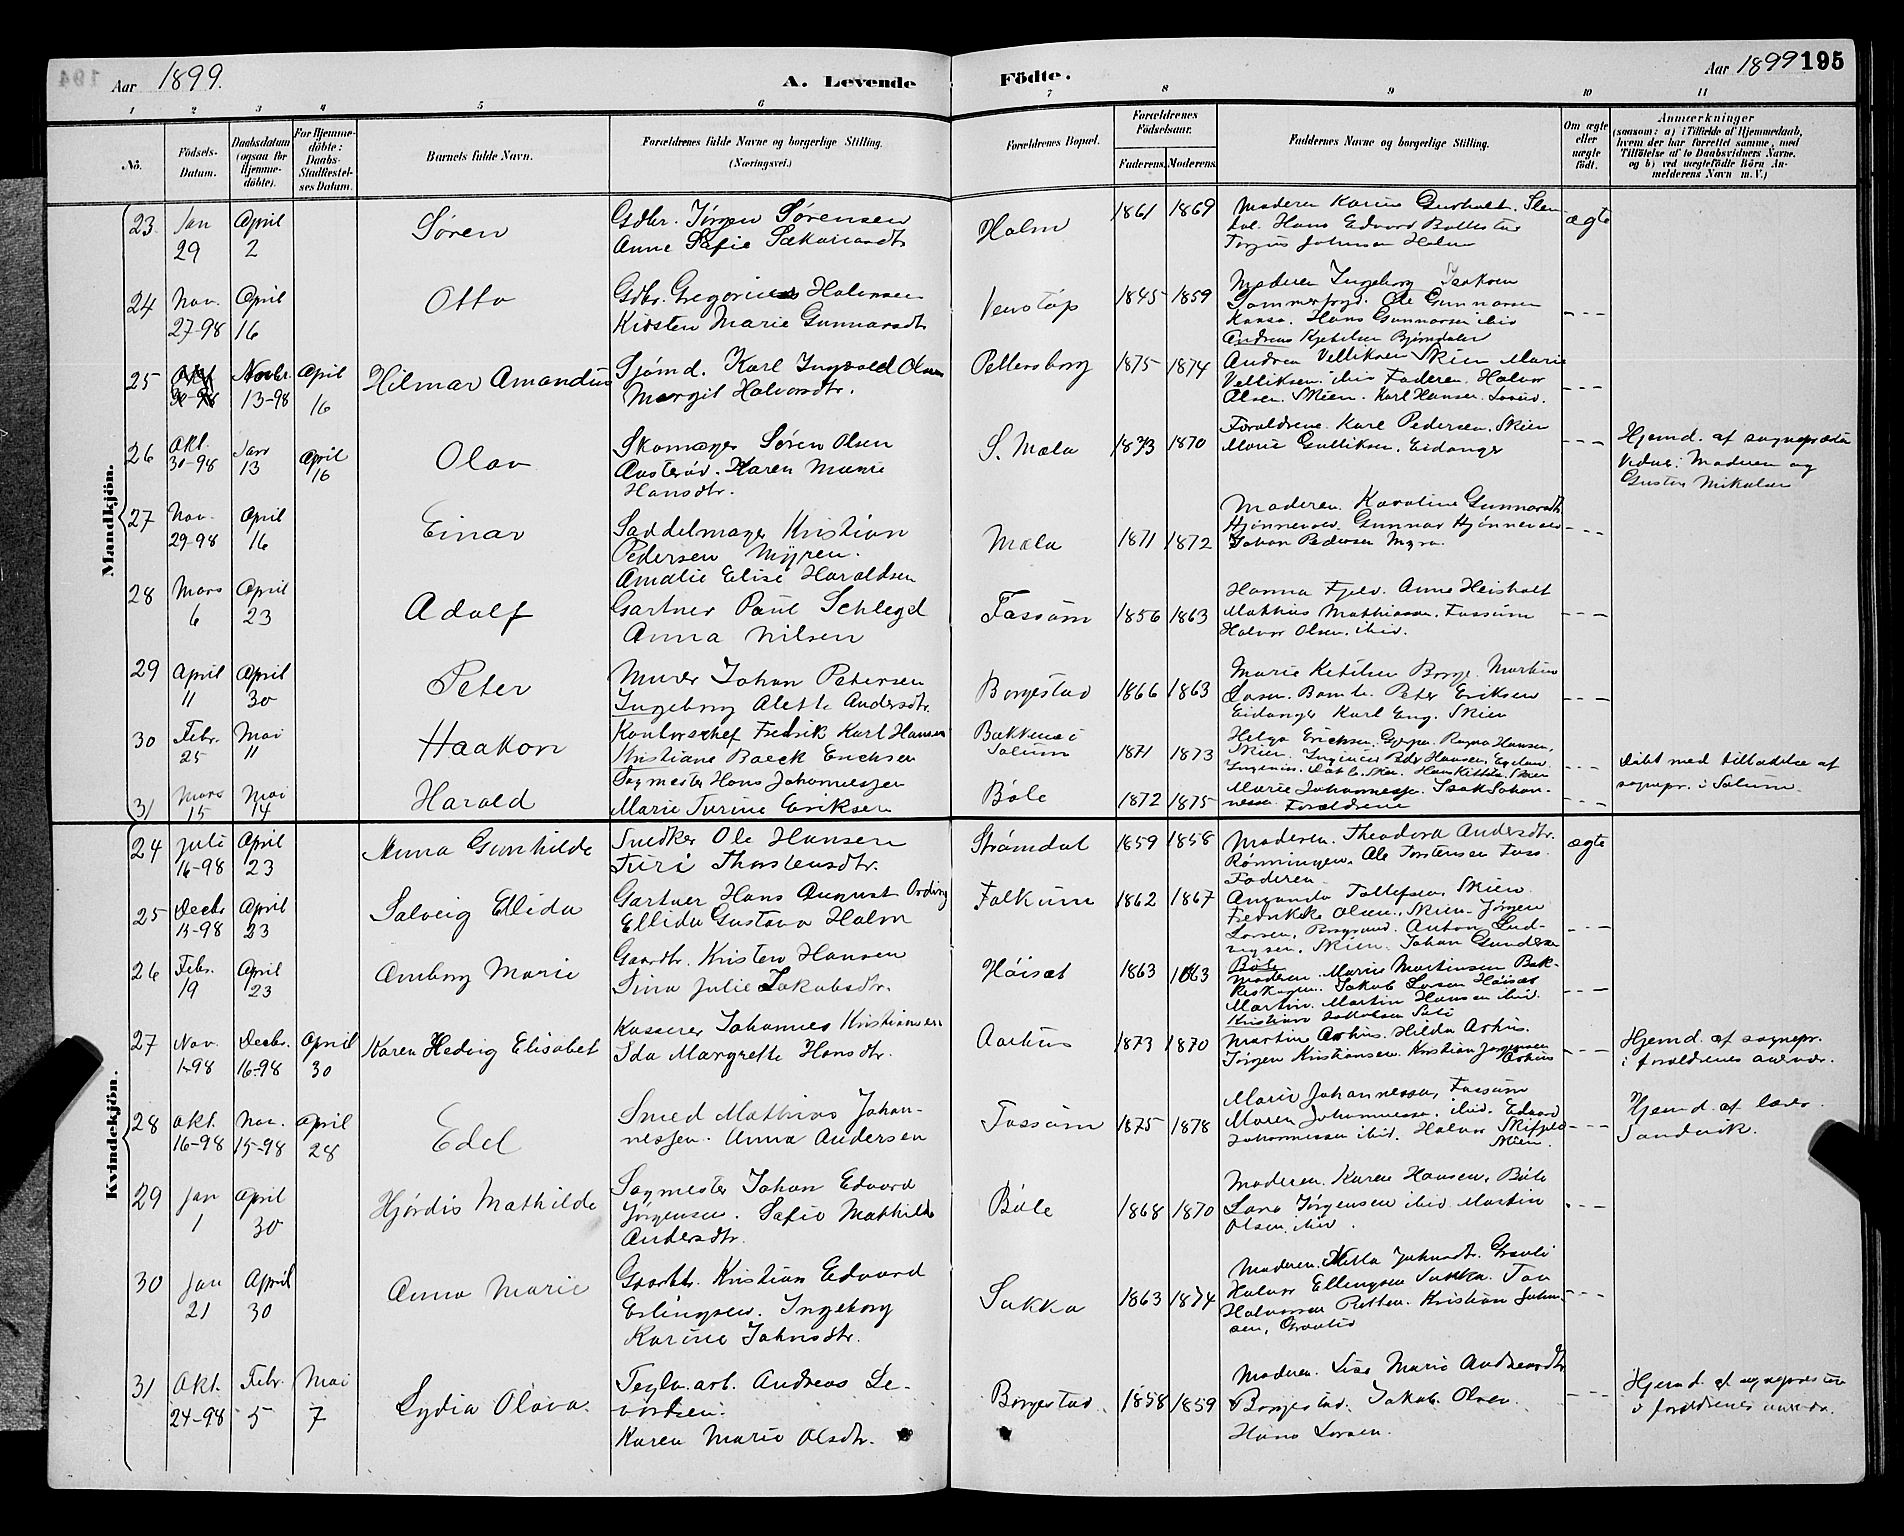 Aar 1899. A. Levende Födte. Aar 1899 195
1 2 3 4 5 6 7 8 9 10 11
No. Födsels-Datum. Daabsdatum (ogsaa for Hjemmedöbte). For Hjemmedöbte: Daabs-Stadfæstelses Datum. Barnets fulde Navn. Forældrenes fulde Navne og borgerlige Stilling. (Næringsvei.) Forældrenes Bopæl. Forældrenes Födselsaar. Faderens. Moderens. Faddernes Navne og borgerlige Stilling. Om ægte eller uægte födt. Anmærkninger (saasom: a) i Tilfælde af Hjemmedaab, hvem der har forrettet samme, med Tilföielse af to Daabsvidners Navne. og b) ved uægtefödte Börn Anmelderens Navn m. V.)
Mandkjön.
23 Jan 29 April 2 Søren Gdbr. Jørgen Sørensen Holm 1861 1869 Moderen Karen ægte
Anne Sofie Hans Edvard
Johnsen Holm
24 Nov. 27-98 April 16 Otto Gdbr. Gregorius Halvorsen Venstøp 1845 1859 Moderen Ingeborg Isaksen
Kirsten Marie Gunnarsdtr Ole Gunnarsen
Hans Gunnarsen ibid
Andreas Kjetilsen Bjørndalen
25 Novbr. 13-98 April 16 Hilmar Amandus Sjømd. Karl Ingvald Olsen Pettersborg 1875 1874 Andrea Skien Marie
Margit Halvorsdtr. ibid Faderen. Halvor
Olsen. Skien. Karl Hansen.
26 Okt. 30-98 Jan 13 April 16 Olav Skomager Søren Olsen S. Mæla 1873 1870 Forældrene. Karl Pedersen. Skien Hjemd. af sognepræsten
Karen Marie Marie Gulliksen. Eidanger Vidner: Moderen og
Hansdtr. Gustav Mikalsen
27 Nov. 29-98 April 16 Einar Saddelmager Kristian Mæla 1871 1872 Moderen. Karoline Gunnarsdtr
Pedersen Myren. Hjønnevald. Gunnar Hjønnevald
Amalie Elise Haraldsen Johan Pedersen Myra.
28 Mars 6 April 23 Adolf Gartner Paul Schlegel Fossum 1856 1863 Hanna Fjeld. Anne Heisholt
Anna Nilsen Mathias Mathiassen. Fossum
Halvor Olsen. ibid.
29 April 11 April 30 Peter Murer Johan Petersen Borgestad 1866 1863 Marie Ketilsen Borge.
Ingeborg Alette Andersdtr. Bamble. Peter Eriksen
Eidanger Karl Eng. Skien
30 Febr. 25 Mai 11 Haakon Kontorschef Fredrik Karl Hansen Bakkene i Solum 1871 1873 Helga Erichsen. Gjerpen. Ragna Hansen,
Kristiane Baeck Erichsen Skien. Døbt med tilladelse af
sognepr. i Solum.
31 Mars 15 Mai 14 Harald Sagmester Hans Johannessen Bøle 1872 1875 Marie Johannessen. Isak Johan-
Marie Turine Eriksen nessen Forældrene
Kvindekjön.
24 Juli 16-98 April 23 Anna Gunhilde Snedker Ole Hansen Strømdal 1859 1858 Moderen. Theodora Andersdtr. ægte
Turi Thorstensdtr. Rønningen. Ole Torstensen
Faderen
25 Decbr April 23 Solveig Ellida Gartner Hans August Ording Falkum 1862 1867 Amanda Tollefsen. Skien
Ellida Gustava Holm Fredrikke Olsen. Skien. Jørgen
Larsen. Borgund. Anton Lud-
vigsen. Skien. Johan Gundersen
Bøle
26 Febr. 19 April 23 Amborg Marie Gaardbr. Kristen Hansen Høisæt 1863 1863 Moderen. Marie Martinsen
Tina Julie Jakobsdtr. Jakob Larsen Høisæt
Martin. Martin Hansen ibid.
Kristian Jakobsen
27 Nov. 1-98 Decbr. 16-98 April 30 Karen Hedvig Elisabet Kasserer Johannes Kristiansen Aarhus 1873 1870 Martin Aarhus. Hilda Aarhus. Hjemd. af sognepr.
Ida Margrethe Hansdtr. Jørgen Kristiansen. Kristian Jørgensen Aarhus i forældrenes nærvær.
28 Okt. 16-98 Nov. 15-98 April 28 Edel Smed Mathias Johan- Fossum 1875 1878 Marie Johannessen, Fossum Hjemd. af lærer
nessen. Anna Andersen Maren Johannessen. ibid. Edvard Sandvik.
Johannessen ibid. Halvor
Skien.
29 Jan 1 April 30 Hjørdis Mathilde Sagmester Johan Edvard Bøle 1868 1870 Moderen. Karen Hansen. Bøle
Jørgensen. Sofie Mathilde Lars Jørgensen ibid Martin
Andersdtr. Olsen. ibid.
30 Jan 21 April 30 Anna Marie Gaardbr. Kristian Edvard Sukka 1863 1874 Moderen.
Erlingsen. Ingeborg Halvor Ellingsen Sukka.
Karine Johnsdtr. Halvorsen Kristian John-
sen,
31 Okt. 24-98 Febr. 5 Mai 7 Lydia Olava. Teglv. arb. Andreas Se- Borgestad. 1858 1859 Moderen. Lise Marie Hjemd. af sognepræsten
Borgestad. Jakob Olsen i forældrenes nærvær.
Karen Marie Olsdtr. Hans Larsen.